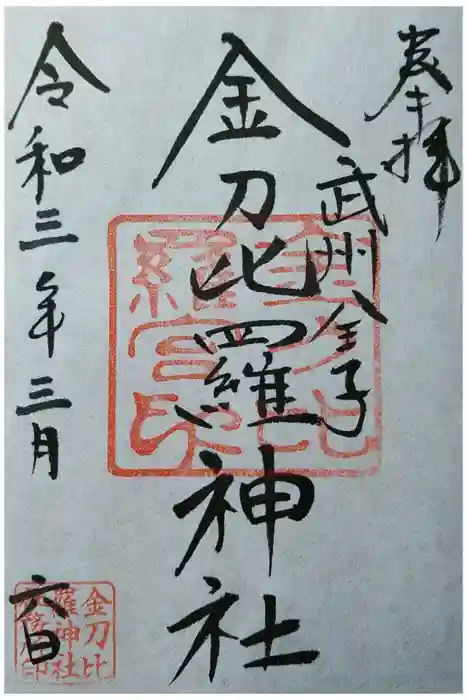 奉拝
武州金子
金刀比羅神社
令和三年三月
六日
金刀比
羅宮印
金刀比
羅神社